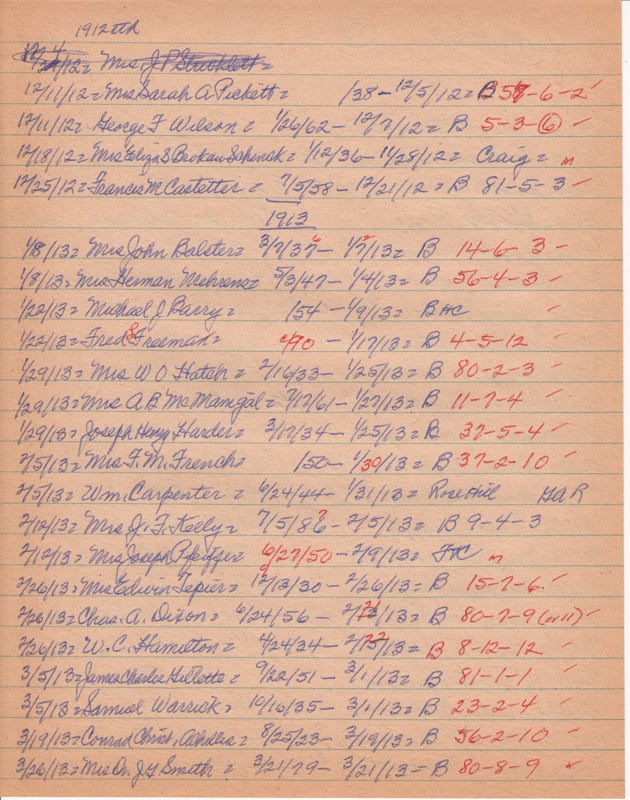 1912
12/11/12 = Mrs Sarah A Pickett = /38 - 12/5/12 = B 57-6-2 ✓
12/11/12 = George F Wilson = 1/26/62 - 12/7/12 = B 5-3-6 ✓
12/18/12 = Mrs Eliza S Brokaw Schenck = 1/12/36 - 11/28/12 = Craig = m
12/25/12 = Francis M Castetter = 7/5/58 - 12/21/12 = B 81-5-3 ✓
1913
1/8/13 = Mrs John Balster = 3/7/37 6 - 1/7/13 = B 14-6-3 -
1/8/13 = Mrs Herman Mehrens = 5/3/47 - 1/4/13 = B 56-4-3 ✓
1/22/13 = Michael J Barry = /54 - 1/9/13 = B HC ✓
1/22/13 = Fred S Freeman = c/90 - 1/17/13 = B 4-5-12 ✓
1/29/13 = Mrs W O Hatch = 2/16/33 - 1/25/13 = B 80-2-3 ✓
1/29/13 = Mrs A B McManigal = 7/17/61 - 1/27/13 = B 11-7-4 ✓
1/29/13 = Joseph Henry Harder = 3/17/34 - 1/25/13 = B 37-5-4 ✓
2/5/13 = Mrs F. M. French = /50 - 1/30/13 = B 37-2-10 ✓
2/5/13 = Wm. Carpenter = 6/24/44 - 1/31/13 = Rose Hill GAR
2/12/13 = Mrs J. F. Keely = 7/5/86 ? - 2/5/13 = B 9-4-3
2/12/13 = Mrs Joseph Pfeiffer = 6/27/50 - 2/9/13 = FtC m
2/26/13 = Mrs Edwin Tepier = 12/13/30 - 2/26/13 = B 15-7-6. ✓
2/26/13 = Chas. A. Dixon = 6/24/56 - 2/ /13 = B 80-7-9 (or 11) ✓
2/26/13 = W. C. Hamilton = 4/24/34 - 2/ /13 = B 8-12-12 ✓
3/5/13 = James Charles Gillette = 9/22/51 - 3/1/13 = B 81-1-1 ✓
3/5/13 = Samuel Warrick = 10/16/35 - 3/1/13 = B 23-2-4 ✓
3/19/13 = Conrad Christ, = 8/25/23 - 3/19/13 = B 56-2-10 ✓
3/26/13 = Mrs Dr. J Y Smith = 3/21/79 - 3/21/13 = B 80-8-9 ✓